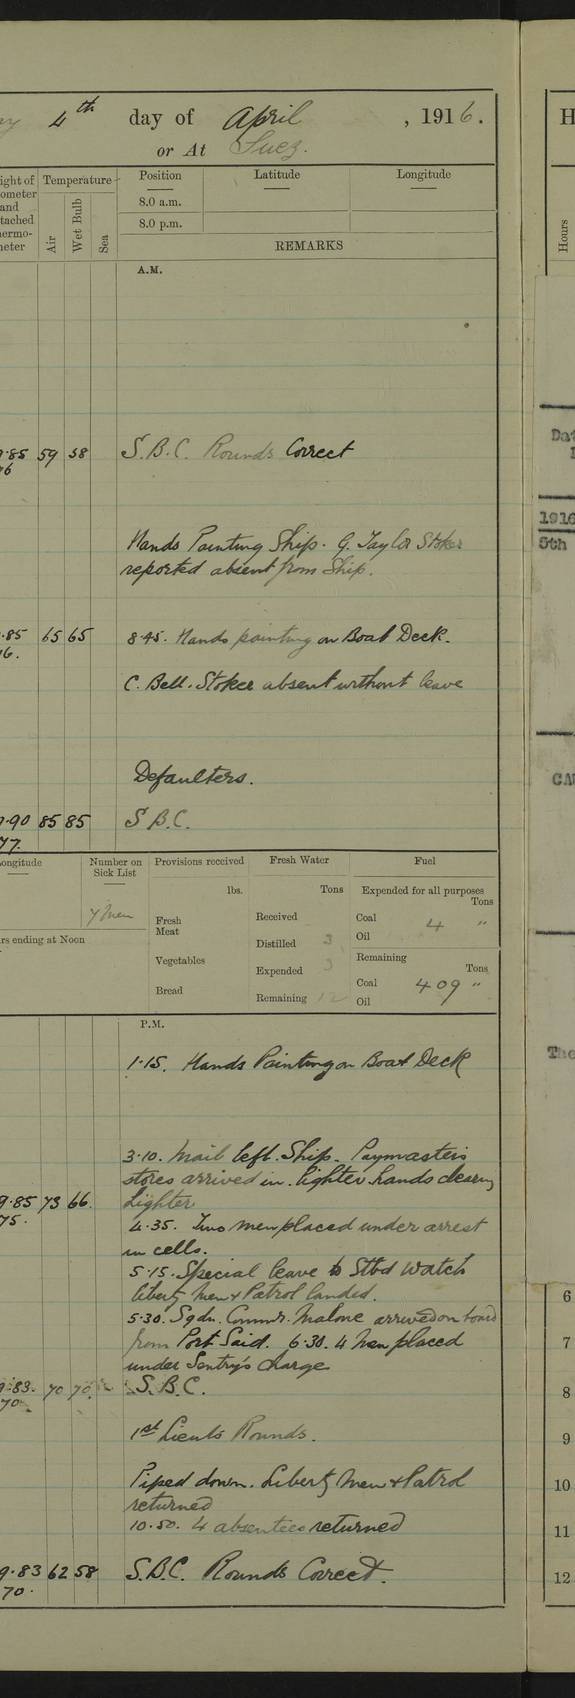 4th day of April, 1916.
or At Suez.
Temperature
Position Latitude Longitude
Air Wet Bulb Sea
8.0 a.m.
8.0 p.m.
REMARKS
Hours
A.M.
59 58 S.B.C. Rounds Correct
Hands Painting Ship. G. Taylor Stoker
reported absent from Ship.
65 65 8.45. Hands painting on Boat Deck.
C. Bell. Stoker absent without leave
Defaulters.
85 85 S.B.C.
77.
Number on Sick List
7 men
Provisions received
lbs.
Fresh Meat
Vegetables
Bread
Fresh Water
Tons
Received
Distilled 3
Expended 3
Remaining 12
Fuel
Expended for all purposes
Tons
Coal 4 "
Oil
Remaining
Tons
Coal 409 "
Oil
rs ending at Noon
P.M.
1.15. Hands Painting on Boat Deck
3.10. Mail left Ship. Paymasters
stores arrived in lighter hands clearing
9.85 73 66. Lighter
75.
4.35. Two men placed under arrest
in cells.
5.15. Special leave to Stbd Watch
liberty men & Patrol landed.
5.30. Sqdn. Commr. Malone arrived on board
from Port Said. 6.30. 4 men placed
under Sentry's charge
9.83. 70 70. S.B.C.
70
1st Lieuts Rounds.
Piped down. Liberty men & Patrol
returned
10.50. 4 absentees returned
9.83 62 58 S.B.C. Rounds Correct.
70.
1916
5th
The
6
7
8
9
10
11
12